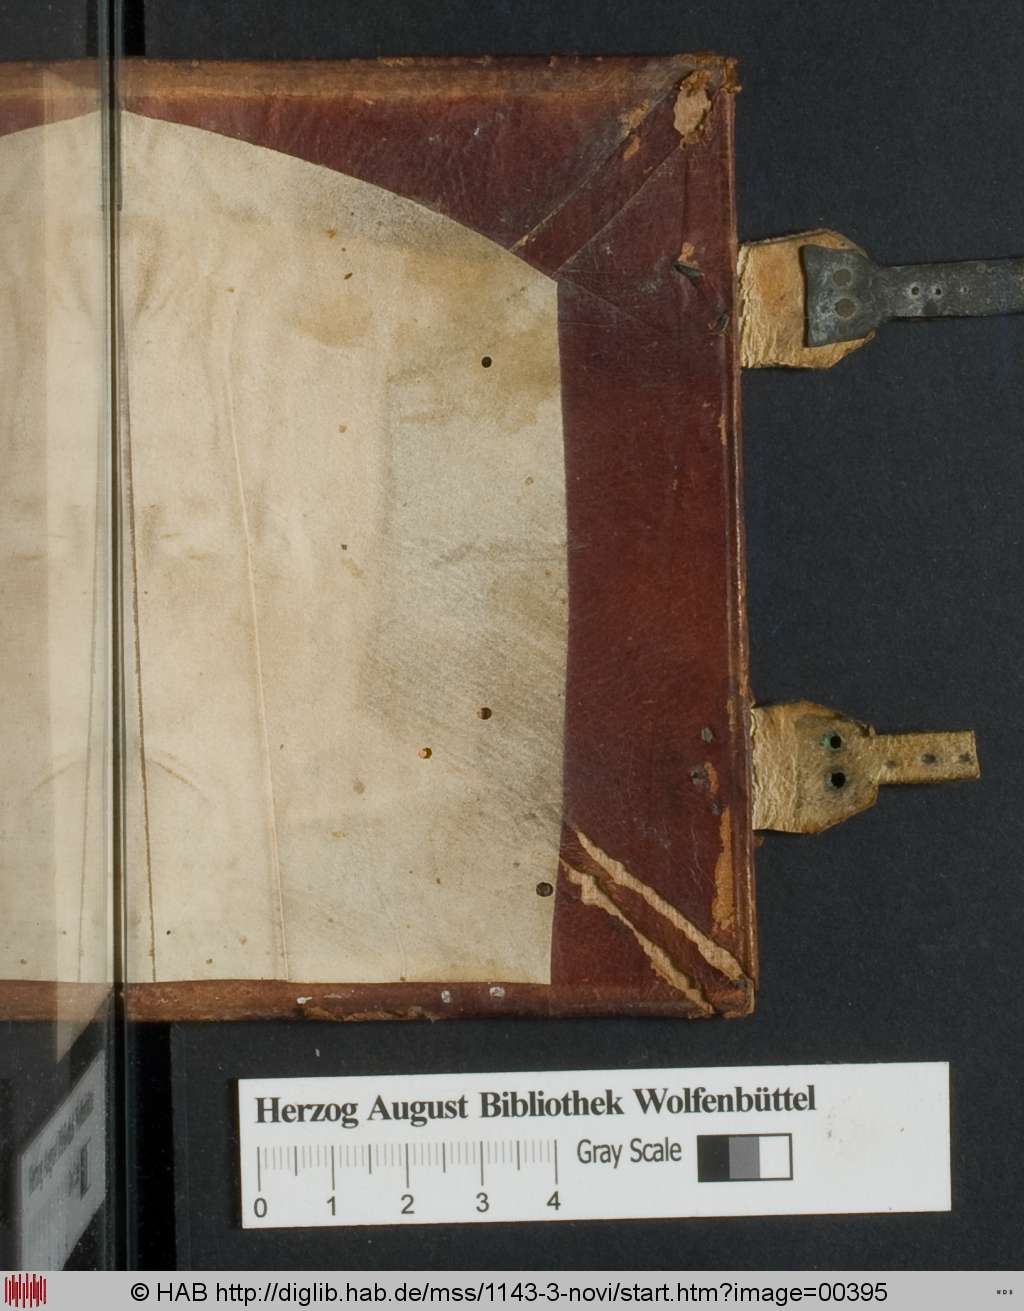 Herzog August Bibliothek Wolfenbüttel
Gray Scale
0 1 2 3 4
© HAB http://diglib.hab.de/mss/1143-3-novi/start.htm?image=00395